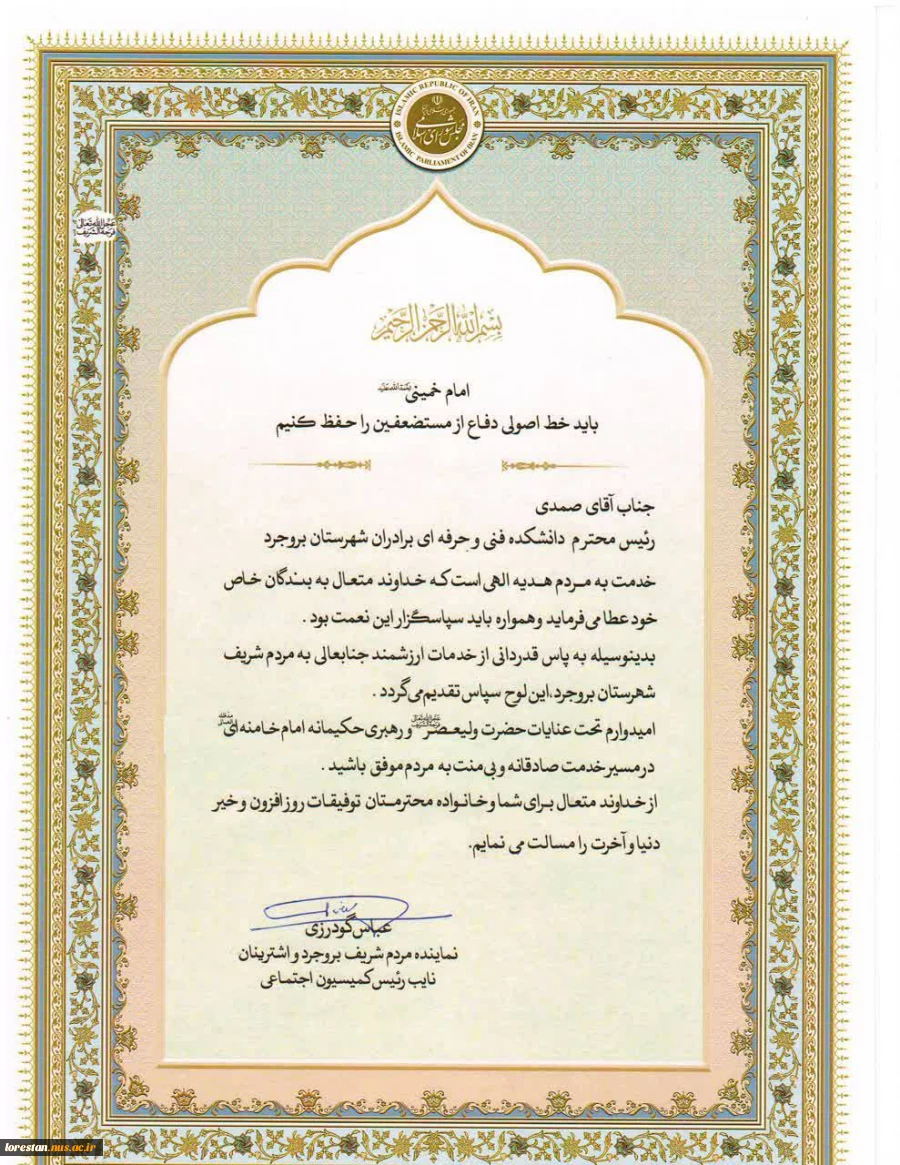 ISLAMIC REPUBLIC OF IRAN
مجلس شورای اسلامی
ISLAMIC PARLIAMENT OF IRAN
عجل الله تعالی
فرجه الشریف
بسم الله الرحمن الرحیم
امام خمینی رحمة الله علیه
باید خط اصولی دفاع از مستضعفین را حفظ کنیم
جناب آقای صمدی
رئیس محترم دانشکده فنی و حرفه ای برادران شهرستان بروجرد
خدمت به مردم هدیه الهی است که خداوند متعال به بندگان خاص
خود عطا می‌فرماید و همواره باید سپاسگزار این نعمت بود .
بدینوسیله به پاس قدردانی از خدمات ارزشمند جنابعالی به مردم شریف
شهرستان بروجرد،این لوح سپاس تقدیم می‌گردد .
امیدوارم تحت عنایات حضرت ولیعصر عجل الله تعالی فرجه الشریف و رهبری حکیمانه امام خامنه ای
در مسیر خدمت صادقانه و بی منت به مردم موفق باشید .
از خداوند متعال برای شما و خانواده محترمتان توفیقات روز افزون و خیر
دنیا و آخرت را مسالت می نمایم.
عباس گودرزی
نماینده مردم شریف بروجرد و اشترینان
نایب رئیس کمیسیون اجتماعی
lorestan.nus.ac.ir